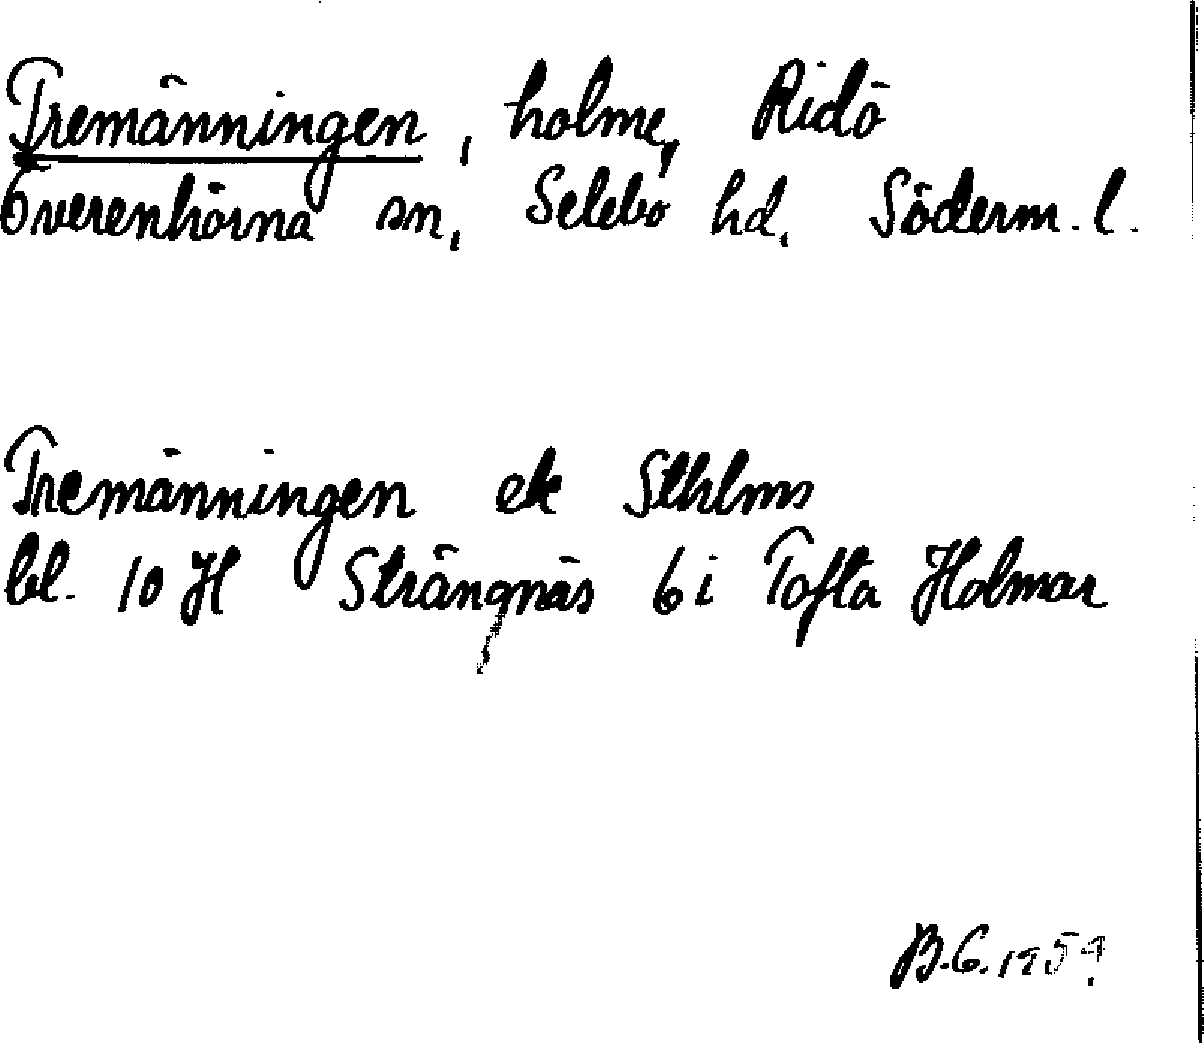 Tremänningen, holme, Ridö
Överenhörna sn, Selebo hd, Söderm. l.
Tremänningen ek Sthlms
bl. 10 H Strängnäs 6i Tofta Holmar
B.G. 1959